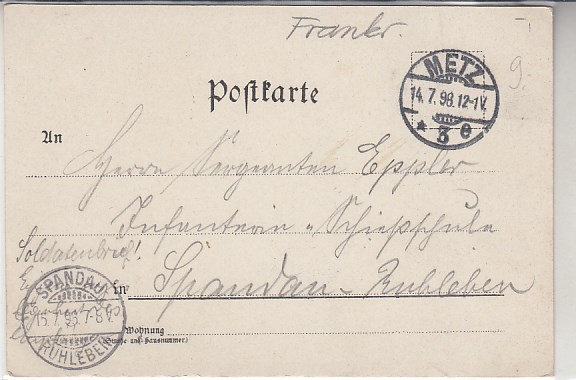 Frankr.
METZ
14.7.98.12-1V.
* 3 e
9.-
Postkarte
An
Herrn Sergeanten Eppler
Infanterie-Schießschule
in Spandau-Ruhleben
Soldatenbrief!
SPANDAU
15.7.98.7-8V.
RUHLEBEN
Wohnung
(Straße und Hausnummer)